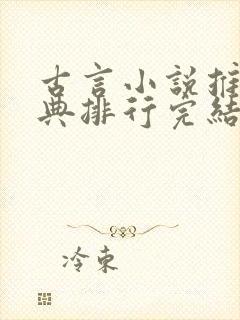 古言小說推
典排行完結
冷束